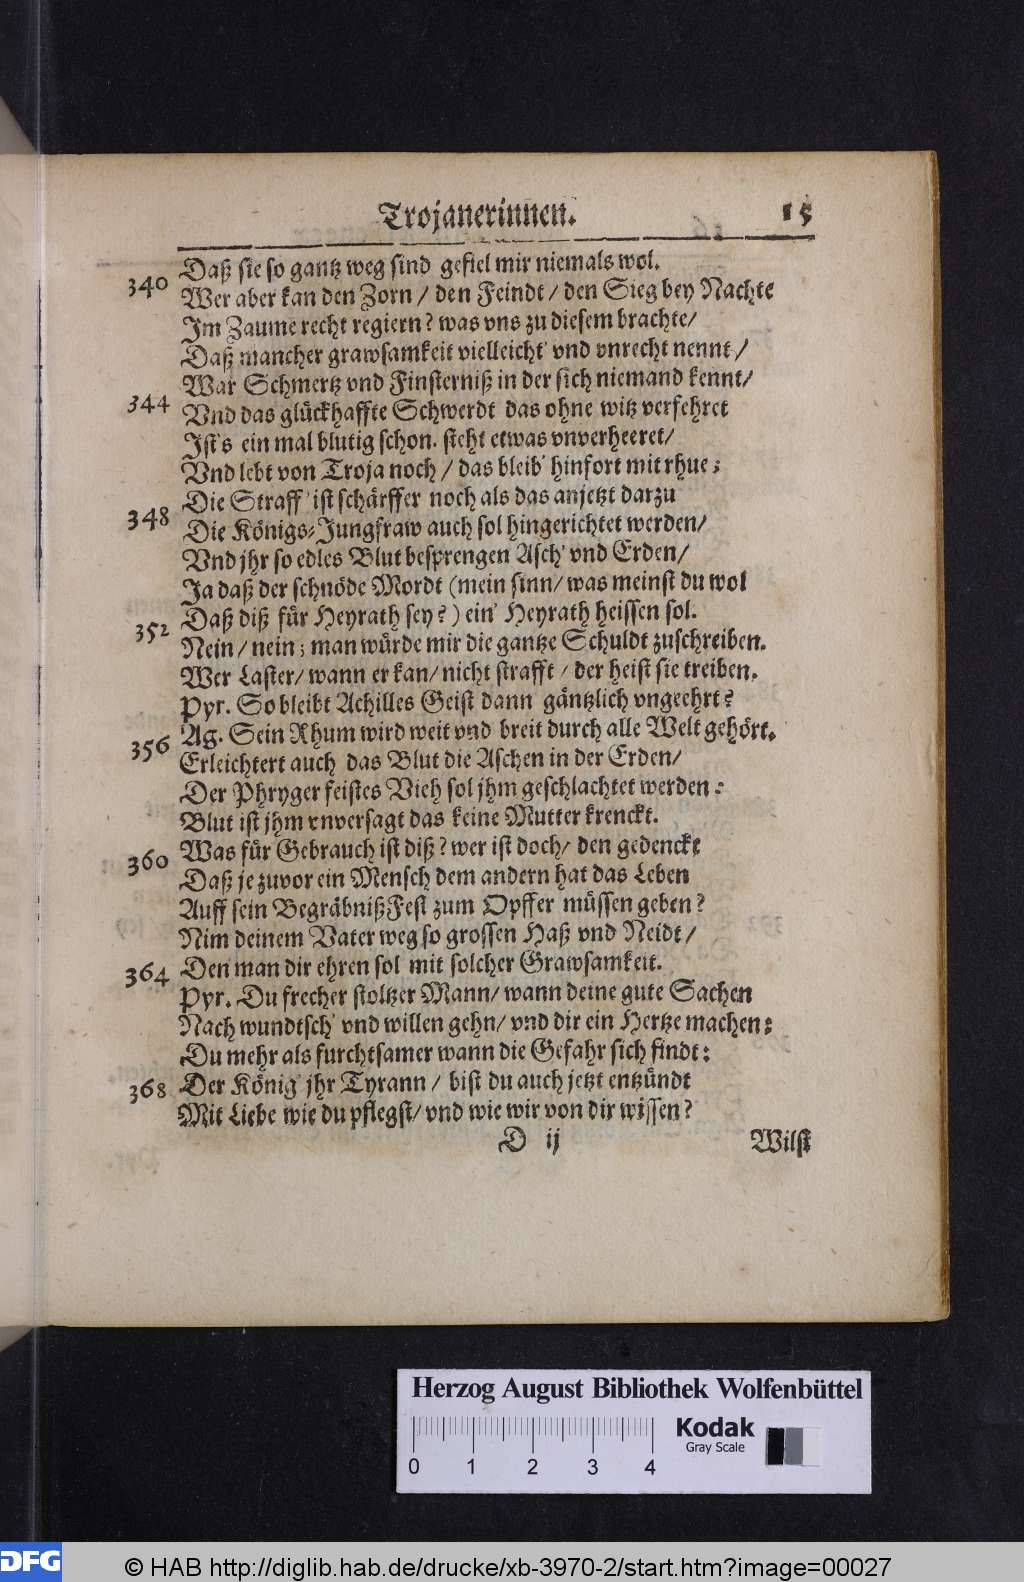 Trojanerinnen. 15
Daß sie so gantz weg sind gefiel mir niemals wol.
340 Wer aber kan den Zorn / den Feindt / den Sieg bey Nachte
Im Zaume recht regiern? was vns zu diesem brachte/
Daß mancher grawsamkeit vielleicht' vnd vnrecht nennt/
War Schmertz vnd Finsterniß in der sich niemand kennt/
344 Vnd das glückhaffte Schwerdt das ohne witz verfehret
Ist's ein mal blutig schon. steht etwas vnverheeret/
Vnd lebt von Troja noch / das bleib' hinfort mit rhue;
Die Straff' ist schärffer noch als das anjetzt darzu
348 Die Königs-Jungfraw auch sol hingerichtet werden/
Vnd jhr so edles Blut besprengen Asch' vnd Erden/
Ja daß der schnöde Mordt (mein sinn/ was meinst du wol
Daß diß für Heyrath sey?) ein' Heyrath heissen sol.
352 Nein / nein; man würde mir die gantze Schuldt zuschreiben.
Wer Laster/ wann er kan/ nicht strafft / der heist sie treiben.
Pyr. So bleibt Achilles Geist dann gäntzlich vngeehrt?
Ag. Sein Rhum wird weit vnd breit durch alle Welt gehört.
356 Erleichtert auch das Blut die Aschen in der Erden/
Der Phryger feistes Vieh sol jhm geschlachtet werden:
Blut ist jhm vnversagt das keine Mutter krenckt.
360 Was für Gebrauch ist diß? wer ist doch/ den gedenckt
Daß je zuvor ein Mensch dem andern hat das Leben
Auff sein BegräbnißFest zum Opffer müssen geben?
Nim deinem Vater weg so grossen Haß vnd Neidt/
364 Den man dir ehren sol mit solcher Grawsamkeit.
Pyr. Du frecher stoltzer Mann/ wann deine gute Sachen
Nach wundtsch' vnd willen gehn/ vnd dir ein Hertze machen;
Du mehr als furchtsamer wann die Gefahr sich findt:
368 Der König' jhr Tyrann / bist du auch jetzt entzündt
Mit Liebe wie du pflegst/ vnd wie wir von dir wissen?
D ij Wilst
Herzog August Bibliothek Wolfenbüttel
Kodak
Gray Scale
0 1 2 3 4
DFG © HAB http://diglib.hab.de/drucke/xb-3970-2/start.htm?image=00027